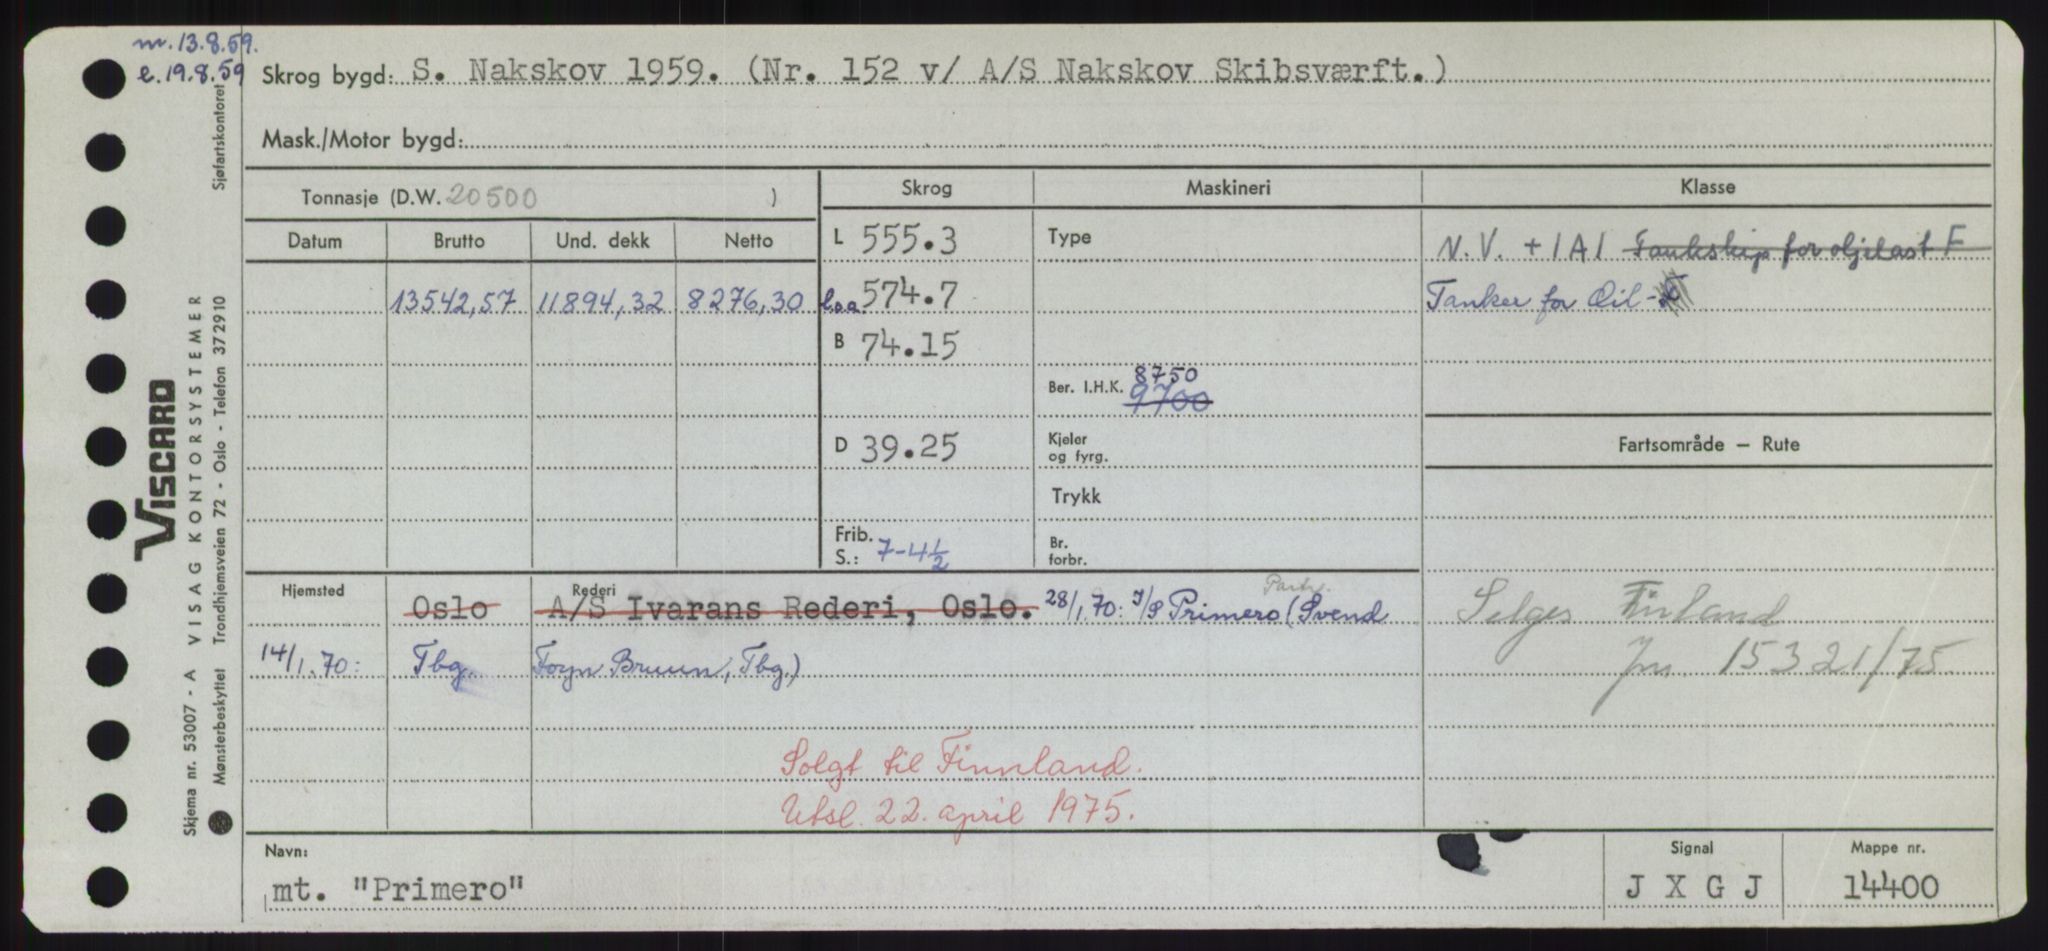 m. 13.8.59.
e. 19.8.59
Skrog bygd: S. Nakskov 1959. (Nr. 152 v/ A/S Nakskov Skibsværft.)
Mask./Motor bygd:
Tonnasje (D.W. 20500 )
Skrog Maskineri Klasse
Datum Brutto Und. dekk Netto
L 555.3 Type N.V. + 1A1 Tankskip for oljelast F
13542,57 11894,32 8276,30 l.o.a. 574.7 Tanker for Oil -
B 74.15
Ber. I.H.K. 8750
9700
D 39.25 Kjeler
og fyrg.
Fartsområde – Rute
Trykk
Frib.
S.: 7-4½
Br.
forbr.
Hjemsted Rederi Partr.
Oslo A/S Ivarans Rederi, Oslo. 28/1.70: I/S Primero (Svend
14/1.70: Tbg. Foyn Bruun, Tbg.)
Selges Finland
Jnr. 15321/75
Solgt til Finnland.
Utsl. 22. april 1975.
Navn:
mt. "Primero"
Signal
J X G J
Mappe nr.
14400
VISCARD
Skjema nr. 53007 - A VISAG KONTORSYSTEMER
Mønsterbeskyttet Trondhjemsveien 72 - Oslo - Telefon 372910 Sjøfartskontoret